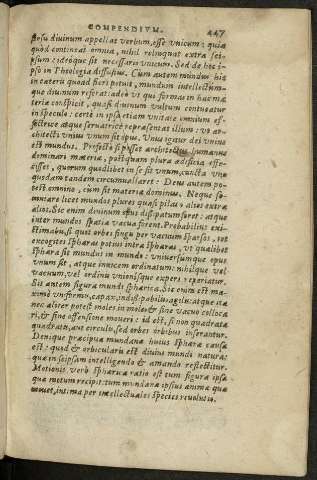 COMPENDIVM. 447
ipsu divinum appellat verbum, esse vnicum: quia
quòd contineat omnia, nihil relinquat extra sei-
psum: ideóque sit necessariò vnicum. Sed de hoc i-
pso in Theologia diffusius. Cum autem mundus hic
in cæteris quoad fieri potuit, mundum intellectum-
que diuinum referat: adeò vt qui formas in hac ma
teria conspicit, quasi diuinum vultum contueatur
in speculo: certè in ipsa etiam vnitate omnium ef-
fectrice atque seruatrice repræsentat illum: vt ar-
chitecti vnius vnum sit opus. Vnius igitur dei vnicus
est mundus. Profectò si posset architectus humanus
dominari materiæ, postquam plura ædificia effe-
cisset, quorum quodlibet in se sit vnum, cuncta vno
quodam tandem circumuallaret: Deus autem po-
test omnino, cum sit materiæ dominus. Neque so-
mniare licet mundos plures quasi pilas alios extra
alios. Sic enim diuinum opus dissipatum foret: atque
inter mundos spatia vacua forent. Probabilius exi-
stimabis, si quot orbes fingis per vacuum sparsos, tot
excogites sphæras potius intra sphæras, vt quælibet
sphæra sit mundus in mundo: vniuersumque opus
vnum sit, atque inuicem ordinatum: nihilque vel
vacuum, vel ordini vnionique expers reperiatur.
Sit autem figura mundi sphærica. Sic enim est ma-
ximè vniformis, capax, indissipabilis, agilis: atque ita
nec aliorsè potest moles in molē & sine vacuo colloca
ri, & sine offensione moueri: id est, si non quadrata
quadratis, aut circulis, sed orbes orbibus inserantur.
Denique præcipua mundanæ huius sphæræ causa
est: quòd & orbicularis est diuina mundi natura:
quæ in seipsam intelligendo & amando reflectitur.
Motionis verò sphæricæ ratio est tum figura ipsa
quæ motum recipit: tum mundana ipsius anima quæ
mouet, intima per intellectuales species reuolutio.